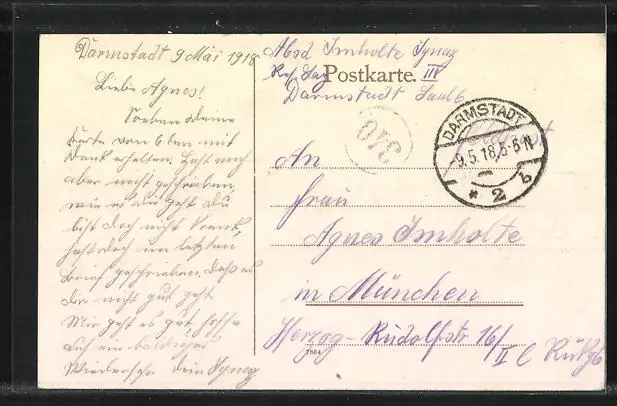 Darmstadt 9 Mai 1918
Liebe Agnes!
Soeben Deine
Karte vom 6ten mit
Dank erhalten. Hast mich
aber nicht geschrieben,
wie es dir geht Du
bist doch nicht krank,
hast doch im letzten
Brief geschrieben, daß es
Dir nicht gut geht
Mir geht es gut hoffe
auf ein baldiges
Wiedersehn Dein Ignaz
Absd Imholte Ignaz
Res. Laz III
Postkarte.
Darmstadt Saal 6
Feldpost
DARMSTADT
-9.5.18.5-6N
* 2 b
An
Frau
Agnes Imholte
in München
Herzog-Rudolfstr 16/II l Rückg
7804